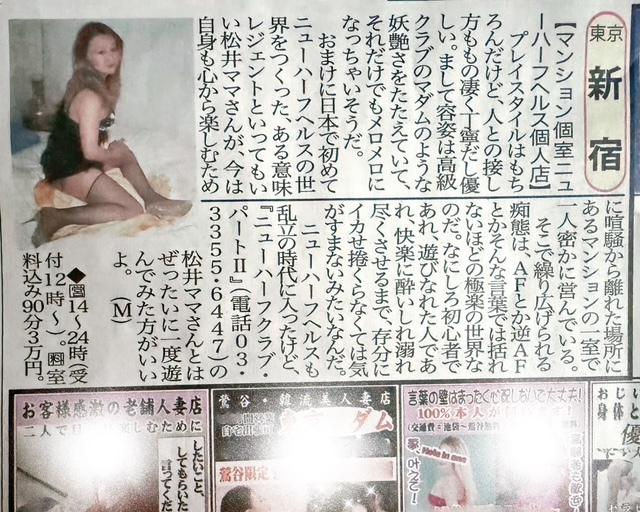 東京
新宿
【マンション個室ニュ
ーハーフヘルス個人店】
プレイスタイルはもち
ろんだけど、人との接し
方ももの凄く丁寧だし優
しい。まして容姿は高級
クラブのマダムのような
妖艶さをたたえていて、
それだけでもメロメロに
なっちゃいそうだ。
おまけに日本で初めて
ニューハーフヘルスの世
界をつくった、ある意味
レジェントといってもい
い松井ママさんが、今は
自身も心から楽しむため
に喧騒から離れた場所に
あるマンションの一室で
一人密かに営んでいる。
そこで繰り広げられる
痴態は、AFとか逆AF
とかそんな言葉では括れ
ないほどの極楽の世界な
のだ。なにしろ初心者で
あれ、遊びなれた人であ
れ、快楽に酔いしれ溺れ
尽くさせるまで、存分に
イカせ捲くらなくては気
がすまないみたいなんだ。
ニューハーフヘルスも
乱立の時代に入ったけど、
『ニューハーフクラブ・
パートⅡ』(電話03・
3355・6447)の
松井ママさんとは
ぜったいに一度遊
んでみた方がいい
よ。(M)
◆営14~24時(受
付12時~)。料室
料込み90分3万円。
お客様感激の老舗人妻店
二人で
楽しむために
したいこと、
してもらいた
言ってくだ
鶯谷・韓流美人妻店
ダム
鶯谷限定
言葉の壁はまったく心配しないで大丈夫!
100%本人が
(交通費=池袋~鶯谷無
Hole in one